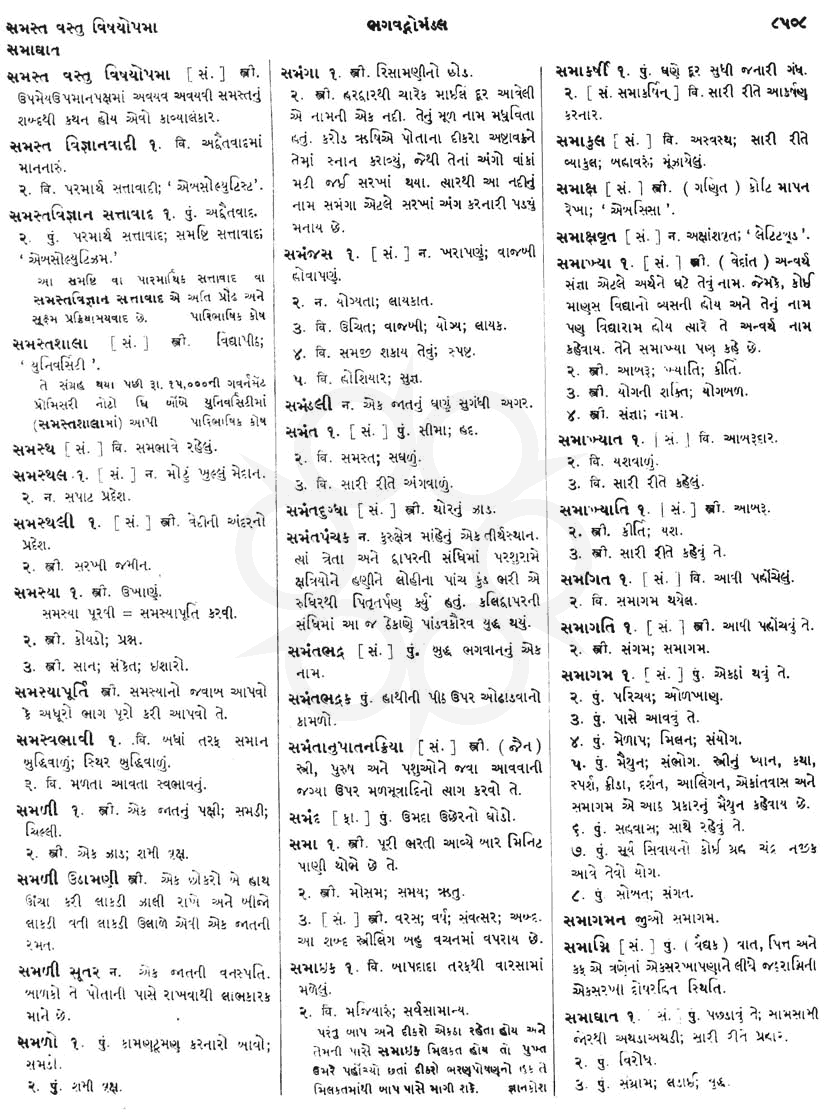 સમસ્ત વસ્તુ વિષયોપમા
ભગવદ્ગોમંડલ
૮૫૦૮
સમાઘાત
સમસ્ત વસ્તુ વિષયોપમા [ સં. ] સ્ત્રી.
ઉપમેયઉપમાનપક્ષમાં અવયવ અવયવી સમસ્તનું
શબ્દથી કથન હોય એવો કાવ્યાલંકાર.
સમસ્ત વિજ્ઞાનવાદી ૧. વિ. અદ્વૈતવાદમાં
માનનારું.
૨. વિ. પરમાર્થ સત્તાવાદી; ‘ એબસોલ્યુટિસ્ટ’.
સમસ્તવિજ્ઞાન સત્તાવાદ ૧. પું. અદ્વૈતવાદ.
૨. પું. પરમાર્થ સત્તાવાદ; સમષ્ટિ સત્તાવાદ;
‘ એબસોલ્યુટિઝમ.’
આ સમષ્ટિ વા પારમાર્થિક સત્તાવાદ વા
સમસ્તવિજ્ઞાન સત્તાવાદ એ અતિ પ્રૌઢ અને
સૂક્ષ્મ પ્રક્રિયામયવાદ છે. પારિભાષિક કોષ
સમસ્તશાલા [ સં. ] સ્ત્રી. વિદ્યાપીઠ;
‘ યુનિવર્સિટી ’.
તે સંગ્રહ થયા પછી રૂા. ૧૫,૦૦૦ની ગવર્નમેંટ
પ્રોમિસરી નોટો ધિ બોંબે યુનિવર્સિટીમાં
(સમસ્તશાલામાં) આપી પારિભાષિક કોષ
સમસ્થ [ સં. ] વિ. સમભાવે રહેલું.
સમસ્થલ ૧. [ સં. ] ન. મોટું ખુલ્લું મેદાન.
૨. ન. સપાટ પ્રદેશ.
સમસ્થલી ૧. [ સં. ] સ્ત્રી. વેદીની અંદરનો
પ્રદેશ.
૨. સ્ત્રી. સરખી જમીન.
સમસ્યા ૧. સ્ત્રી. ઉખાણું.
સમસ્યા પૂરવી = સમસ્યાપૂર્તિ કરવી.
૨. સ્ત્રી. કોયડો; પ્રશ્ન.
૩. સ્ત્રી. સાન; સંકેત; ઇશારો.
સમસ્યાપૂર્તિ સ્ત્રી. સમસ્યાનો જવાબ આપવો
કે અધૂરો ભાગ પૂરો કરી આપવો તે.
સમસ્વભાવી ૧. વિ. બધાં તરફ સમાન
બુદ્ધિવાળું; સ્થિર બુદ્ધિવાળું.
૨. વિ. મળતા આવતા સ્વભાવનું.
સમળી ૧. સ્ત્રી. એક જાતનું પક્ષી; સમડી;
ચિલ્લી.
૨. સ્ત્રી. એક ઝાડ; શમી વૃક્ષ.
સમળી ઉડામણી સ્ત્રી. એક છોકરો બે હાથ
ઊંચા કરી લાકડી ઝાલી રાખે અને બીજો
લાકડી વતી લાકડી ઉલાળે એવી એક જાતની
રમત.
સમળી સૂતર ન. એક જાતની વનસ્પતિ.
બાળકો તે પોતાની પાસે રાખવાથી લાભકારક
માને છે.
સમળો ૧. પું. કામણટૂમણ કરનારો બાવો;
સમડો.
૨. પું. શમી વૃક્ષ.
સમંગા ૧. સ્ત્રી. રિસામણીનો છોડ.
૨. સ્ત્રી. હરદ્વારથી ચારેક માઇલ દૂર આવેલી
એ નામની એક નદી. તેનું મૂળ નામ મધુવિતા
હતું. કરોડ ઋષિએ પોતાના દીકરા અષ્ટાવક્રને
તેમાં સ્નાન કરાવ્યું, જેથી તેનાં અંગો વાંકાં
મટી જઈ સરખાં થયા. ત્યારથી આ નદીનું
નામ સમંગા એટલે સરખાં અંગ કરનારી પડયું
મનાય છે.
સમંજસ ૧. [ સં. ] ન. ખરાપણું; વાજબી
હોવાપણું.
૨. ન. યોગ્યતા; લાયકાત.
૩. વિ. ઉચિત; વાજબી; યોગ્ય; લાયક.
૪. વિ. સમજી શકાય તેવું; સ્પષ્ટ.
૫. વિ. હોશિયાર; સુજ્ઞ.
સમંડલી ન. એક જાતનું ઘણું સુગંધી અગર.
સમંત ૧. [ સં. ] પું. સીમા; હદ.
૨. વિ. સમસ્ત; સઘળું.
૩. વિ. સારી રીતે અંગવાળું.
સમંતદુગ્ધા [ સં. ] સ્ત્રી. થોરનું ઝાડ.
સમંતપંચક ન. કુરુક્ષેત્ર માંહેનું એક તીર્થસ્થાન.
ત્યાં ત્રેતા અને દ્વાપરની સંધિમાં પરશુરામે
ક્ષત્રિયોને હણીને લોહીના પાંચ કુંડ ભરી એ
રુધિરથી પિતૃતર્પણ કર્યું હતું. કલિદ્વાપરની
સંધિમાં આ જ ઠેકાણે પાંડવકૌરવ યુદ્ધ થયું.
સમંતભદ્ર [ સં. ] પું. બુદ્ધ ભગવાનનું એક
નામ.
સમંતભદ્રક પું. હાથીની પીઠ ઉપર ઓઢાડવાનો
કામળો.
સમંતાનુપાતનક્રિયા [ સં. ] સ્ત્રી. ( જૈન )
સ્ત્રી, પુરુષ અને પશુઓને જવા આવવાની
જગ્યા ઉપર મળમૂત્રાદિનો ત્યાગ કરવો તે.
સમંદ [ ફા. ] પું. ઉમદા ઉછેરનો ઘોડો.
સમા ૧. સ્ત્રી. પૂરી ભરતી આવ્યે બાર મિનિટ
પાણી થોભે છે તે.
૨. સ્ત્રી. મોસમ; સમય; ઋતુ.
૩. [ સં. ] સ્ત્રી. વરસ; વર્ષ; સંવત્સર; અબ્દ.
આ શબ્દ સ્ત્રીલિંગ બહુ વચનમાં વપરાય છે.
સમાઇક ૧. વિ. બાપદાદા તરફથી વારસામાં
મળેલું.
૨. વિ. મજિયારું; સર્વસામાન્ય.
પરંતુ બાપ અને દીકરો એકઠા રહેતા હોય અને
તેમની પાસે સમાઇક મિલકત હોય તો પુખ્ત
ઉમરે પહોંચ્યો છતાં દીકરો ભરણપોષણનો હક તે
મિલકતમાંથી બાપ પાસે માગી શકે. જ્ઞાનકોશ
સમાકર્ષી ૧. પું. ઘણે દૂર સુધી જનારી ગંધ.
૨. [ સં. સમાકર્ષિન્ ] વિ. સારી રીતે આકર્ષણ
કરનાર.
સમાકુલ [ સં. ] વિ. અસ્વસ્થ; સારી રીતે
વ્યાકુલ; બહાવરું; મૂંઝાયેલું.
સમાક્ષ [ સં. ] સ્ત્રી. ( ગણિત ) કોટિ માપન
રેખા; ‘ એબસિસા ’.
સમાક્ષવૃત [ સં. ] ન. અક્ષાંશવૃત; ‘ લેટિટયૂડ ’.
સમાખ્યા ૧. [ સં. ] સ્ત્રી. ( વેદાંત ) અન્વર્થ
સંજ્ઞા એટલે અર્થને ઘટે તેવું નામ. જેમકે, કોઈ
માણસ વિદ્યાનો વ્યસની હોય અને તેનું નામ
પણ વિદ્યારામ હોય ત્યારે તે અન્વર્થ નામ
કહેવાય. તેને સમાખ્યા પણ કહે છે.
૨. સ્ત્રી. આબરૂ; ખ્યાતિ; કીર્તિ.
૩. સ્ત્રી. યોગની શક્તિ; યોગબળ.
૪. સ્ત્રી. સંજ્ઞા; નામ.
સમાખ્યાત ૧. [ સં. ] વિ. આબરૂદાર.
૨. વિ. યશવાળું.
૩. વિ. સારી રીતે કહેલું.
સમાખ્યાતિ ૧. [ સં. ] સ્ત્રી. આબરૂ.
૨. સ્ત્રી. કીર્તિ; યશ.
૩. સ્ત્રી. સારી રીતે કહેવું તે.
સમાગત ૧. [ સં. ] વિ. આવી પહોંચેલું.
૨. વિ. સમાગમ થયેલ.
સમાગતિ ૧. [ સં. ] સ્ત્રી. આવી પહોંચવું તે.
૨. સ્ત્રી. સંગમ; સમાગમ.
સમાગમ ૧. [ સં. ] પું. એકઠાં થવું તે.
૨. પું. પરિચય; ઓળખાણ.
૩. પું. પાસે આવવું તે.
૪. પું. મેળાપ; મિલન; સંયોગ.
૫. પું. મૈથુન; સંભોગ. સ્ત્રીનું ધ્યાન, કથા,
સ્પર્શ, ક્રીડા, દર્શન, આલિંગન, એકાંતવાસ અને
સમાગમ એ આઠ પ્રકારનું મૈથુન કહેવાય છે.
૬. પું. સહવાસ; સાથે રહેવું તે.
૭. પું. સૂર્ય સિવાયનો કોઈ ગ્રહ ચંદ્ર નજીક
આવે તેવો યોગ.
૮. પું. સોબત; સંગત.
સમાગમન જીઓ સમાગમ.
સમાગ્નિ [ સં. ] પું. ( વૈદ્યક ) વાત, પિત્ત અને
કફ એ ત્રણેનાં એકસરખાપણાને લીધે જઠરાગ્નિની
એકસરખી દોષરહિત સ્થિતિ.
સમાઘાત ૧. [ સં. ] પું. પછડાવું તે; સામસામી
જોરથી અથડાઅથડી; સારી રીતે પ્રહાર.
૨. પું. વિરોધ.
૩. પું. સંગ્રામ; લડાઈ; યુદ્ધ.